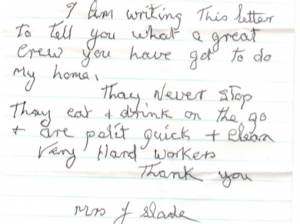 I am writing This letter
To tell you what a great
crew you have got to do
My home,
Thay Never stop
Thay eat + drink on the go
+ are polit quick + clean
Very Hard workers
Thank you
Mrs J Slade